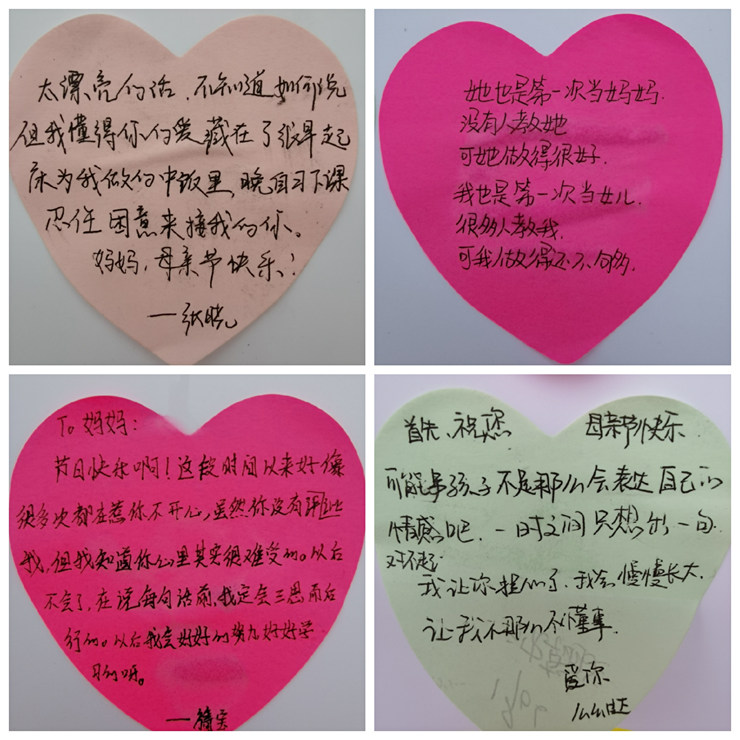 太漂亮的话，不知道如何说
但我懂得你的爱藏在了很早起
床为我做的中饭里，晚自习下课
忍住困意来接我的你。
妈妈，母亲节快乐！
—张晓
她也是第一次当妈妈.
没有人教她
可她做得很好.
我也是第一次当女儿.
很多人教我.
可我做得还不够多.
To 妈妈：
节日快乐啊！这段时间以来好像
很多次都在惹你不开心，虽然你没有
我，但我知道你心里其实很难受的。以后
不会了，在说每句话前，我定会三思而后
行的。以后我会好好的努力好好学
习的呀。
首先，祝您 母亲节快乐
可能是孩子不是那么会表达自己的
情感吧，一时之间只想出一句
对不起：
我让你担心了，我会慢慢长大，
让我不那么不懂事.
爱你
么么哒